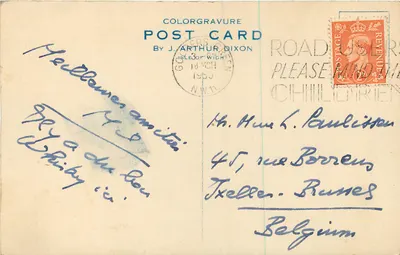 COLORGRAVURE
POST CARD
By J. ARTHUR DIXON
1953
N.W.11
ROAD USERS
PLEASE MIND THE
CHILDREN
POSTAGE
REVENUE
Meilleures amitiés
Il y a du bon
Whisky ici
Mr. Mme L. Paulissen
45, rue Borrens
Ixelles - Brussels
Belgium